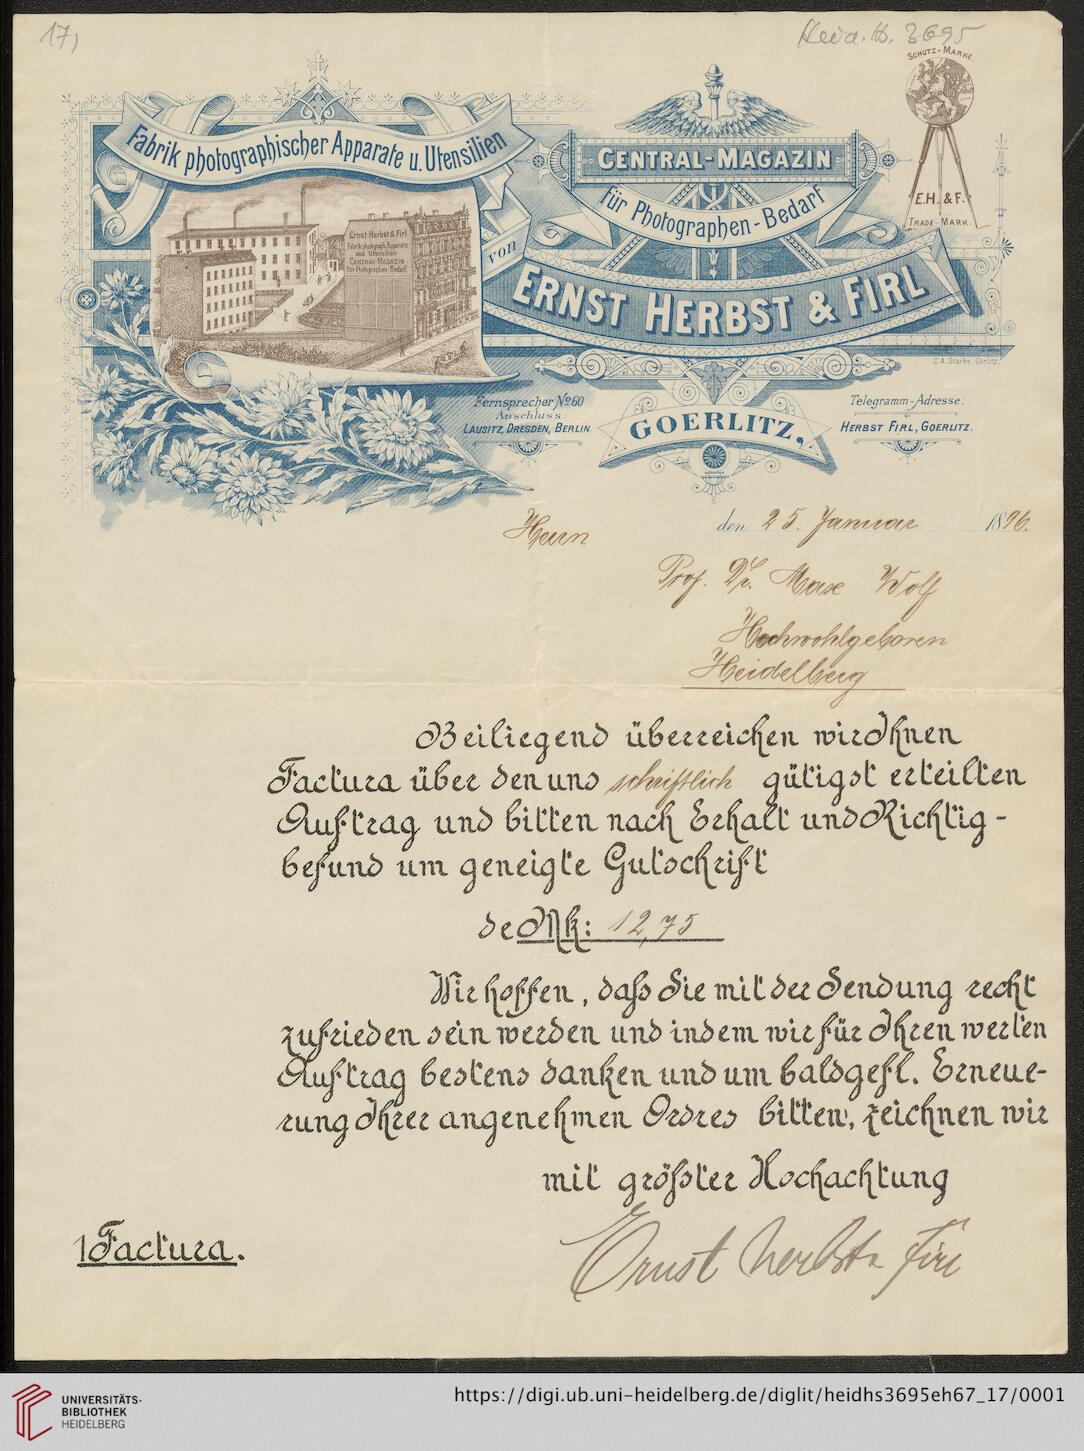 17)
Heid. Hs. 3695
SCHUTZ-MARKE
E.H. & F.
TRADE-MARK.
Fabrik photographischer Apparate u. Utensilien
Ernst Herbst & Firl
Fabrik photograph. Apparate
und Utensilien
CENTRAL-MAGAZIN
für Photographen-Bedarf
CENTRAL-MAGAZIN
für Photographen-Bedarf
von
ERNST HERBST & FIRL
C.A. Starke, Görlitz.
Fernsprecher No 60
Anschluss:
LAUSITZ, DRESDEN, BERLIN.
GOERLITZ,
Telegramm-Adresse:
HERBST FIRL, GOERLITZ.
den 25. Januar 1896.
Herrn
Prof. Dr. Max Wolf
Hochwohlgeboren
Heidelberg
Beiliegend überreichen wir Ihnen
Factura über den uns schriftlich gütigst erteilten
Auftrag und bitten nach Erhalt und Richtig-
befund um geneigte Gutschrift
de Mk: 12,75
Wir hoffen, dass Sie mit der Sendung recht
zufrieden sein werden und indem wir für Ihren werten
Auftrag bestens danken und um baldgefl. Erneue-
rung Ihrer angenehmen Ordres bitten, zeichnen wir
mit grösster Hochachtung
1 Factura.
Ernst Herbst & Firl
UNIVERSITÄTS-
BIBLIOTHEK
HEIDELBERG
https://digi.ub.uni-heidelberg.de/diglit/heidhs3695eh67_17/0001